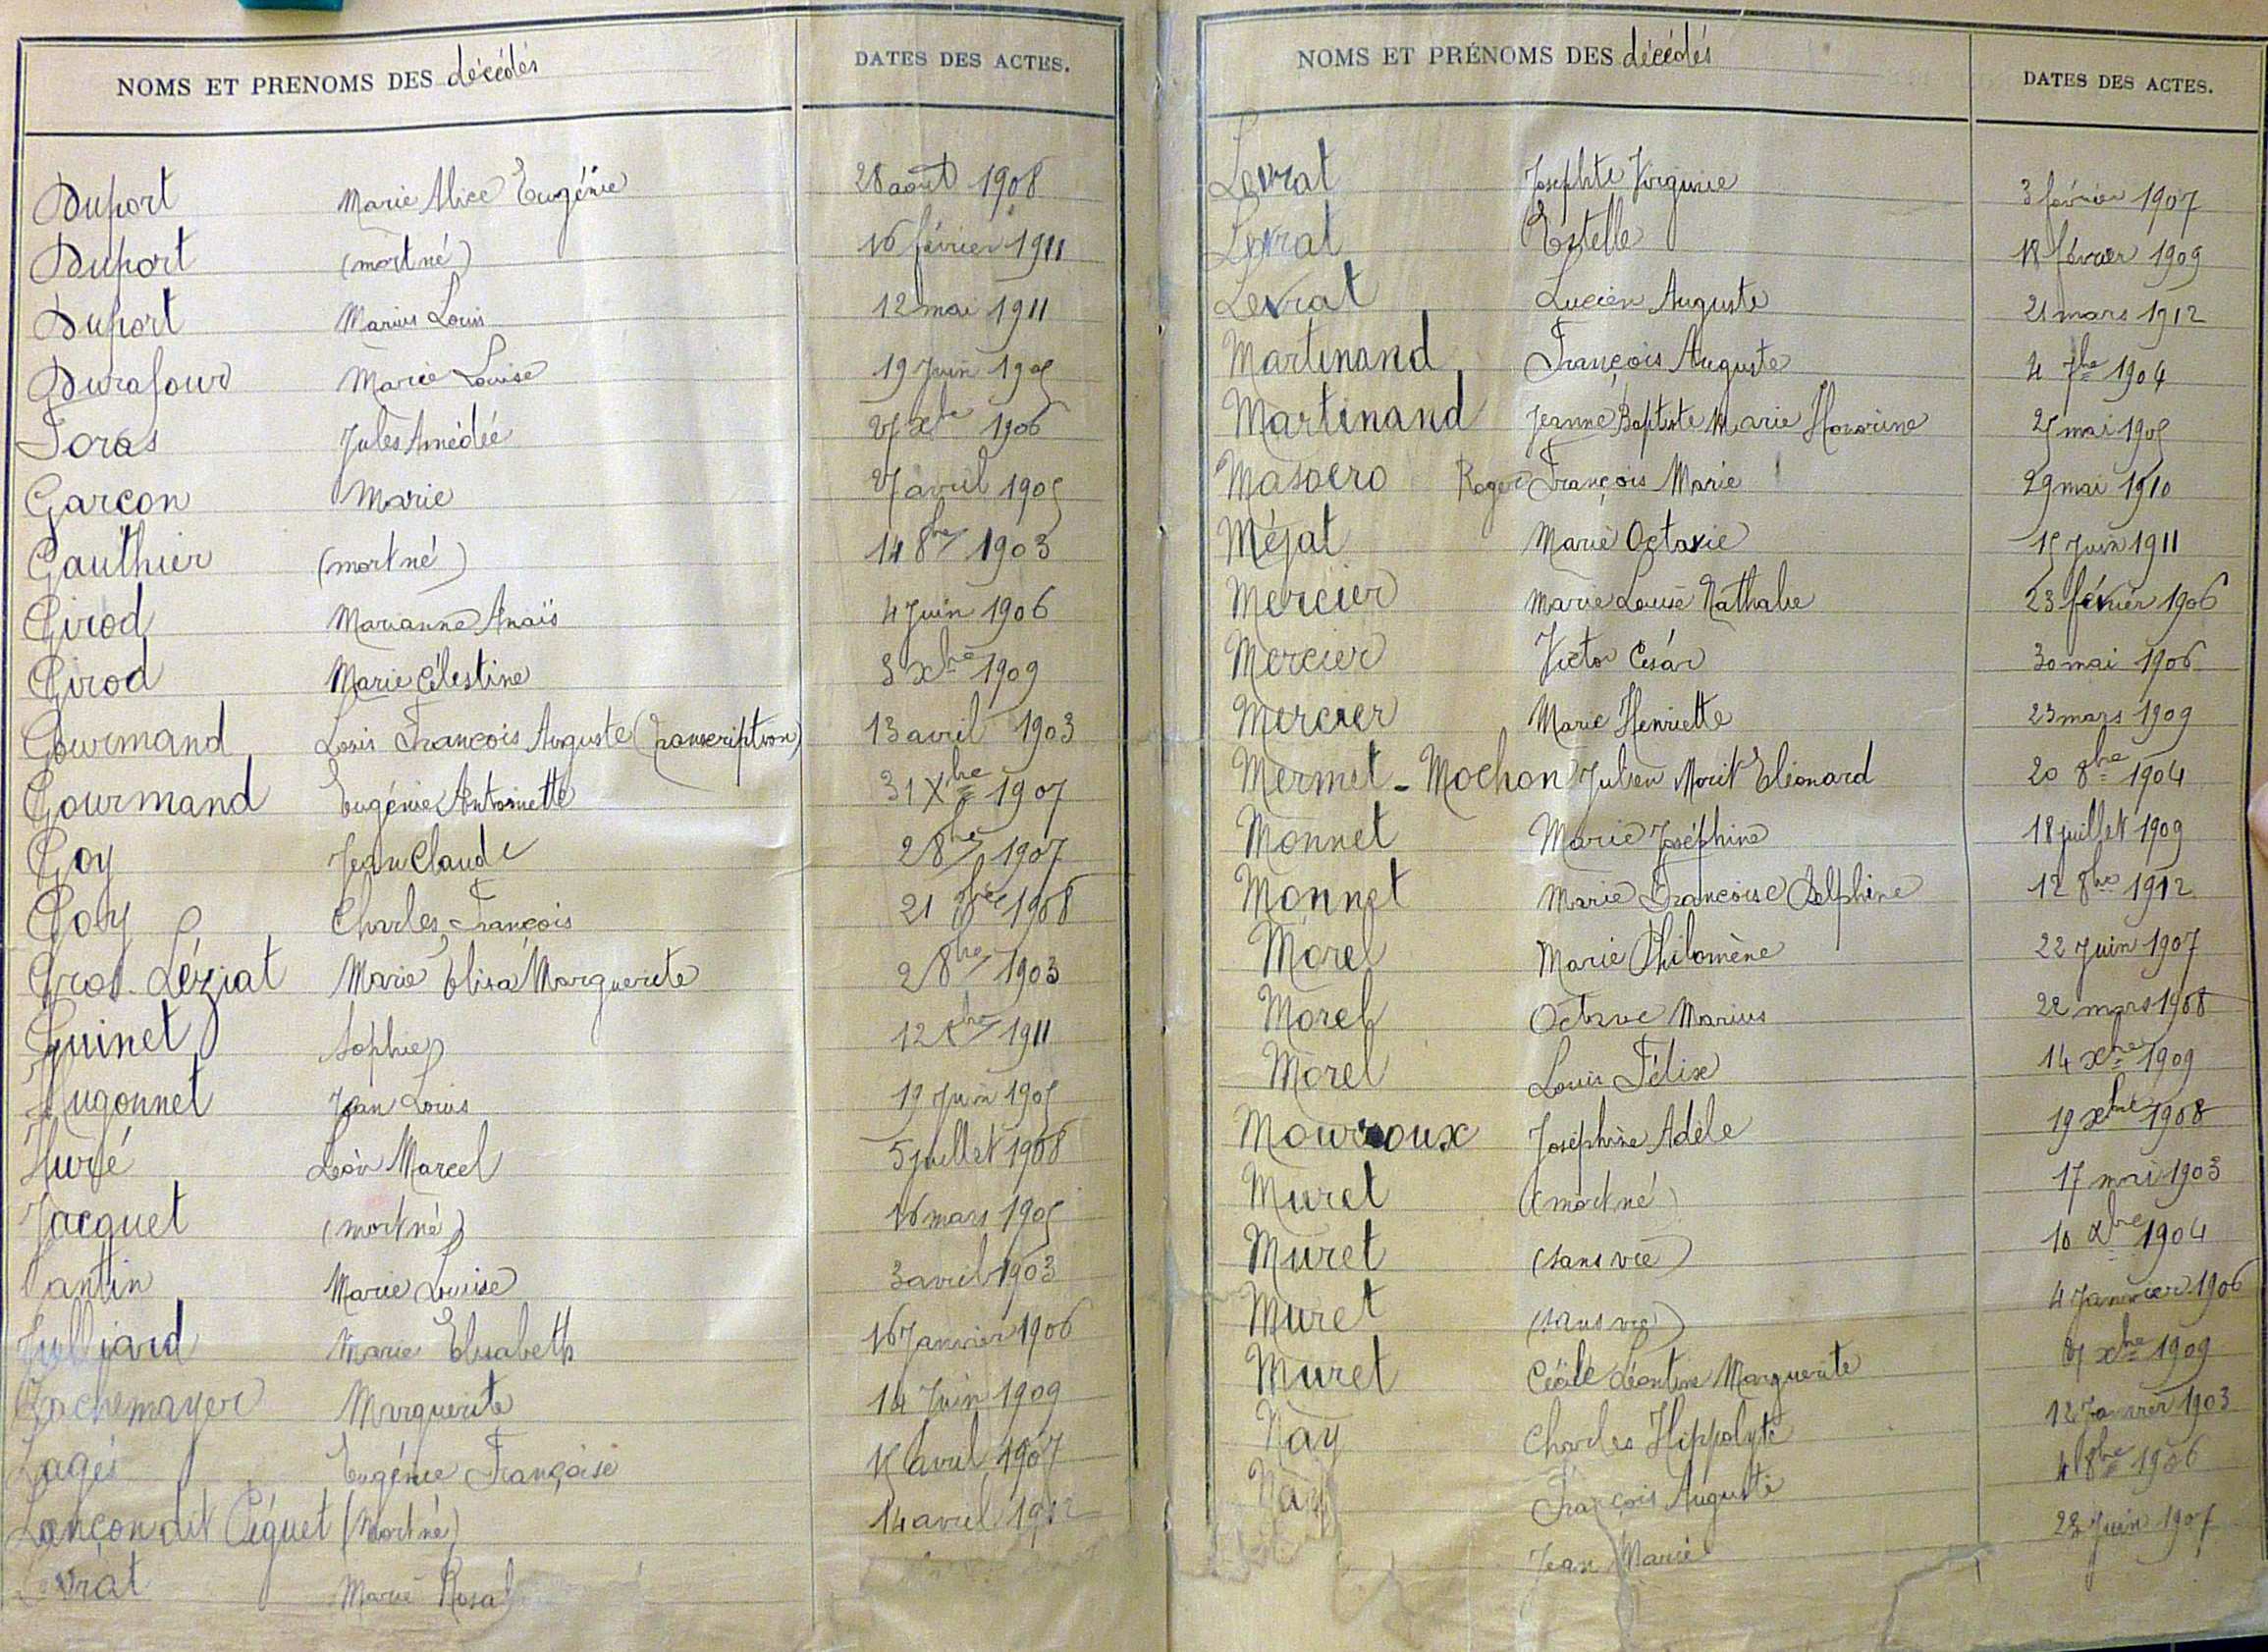 NOMS ET PRENOMS DES décédés DATES DES ACTES.
Duport Marie Alice Eugénie 28 août 1908
Duport (mort né) 16 février 1911
Duport Marius Louis 12 mai 1911
Durafour Marie Louise 19 Juin 1905
Foras Jules Amédée 27 xbre 1906
Garcon Marie 27 avril 1905
Gauthier (mort né) 14 8bre 1903
Girod Marianne Anaïs 4 Juin 1906
Girod Marie Célestine 3 xbre 1909
Gourmand Louis François Auguste (transcription) 13 avril 1903
Gourmand Eugénie Antoinette 31 Xbre 1907
Goy Jean Claude 2 8bre 1907
Goy Charles François 21 1908
Gros-Léziat Marie Elisa Marguerite 2 8bre 1903
Guinet Sophie 12 xbre 1911
Hugonnet Jean Louis 19 Juin 1905
Huré Léon Marcel 5 juillet 1908
Jacquet (mort né) 16 mars 1905
Jantin Marie Louise 3 avril 1903
Julliard Marie Elisabeth 16 Janvier 1906
Marguerite 14 Juin 1909
Lagés Eugénie Françoise 15 avril 1907
Lançon dit Céguet (Mort né) 14 avril 1912
Levrat Marie Rosa
NOMS ET PRÉNOMS DES décédés DATES DES ACTES.
Levrat Josephte Virginie 3 février 1907
Levrat Estelle 18 février 1909
Levrat Lucien Auguste 21 mars 1912
Martinand François Auguste 4 7bre 1904
Martinand Jeanne Baptiste Marie Honorine 25 mai 1905
Masoero Roger François Marie 29 mai 1910
Méjat Marie Octavie 15 Juin 1911
Mercier Marie Louise Nathalie 23 février 1906
Mercier Victor César 30 mai 1906
Mercier Marie Henriette 23 mars 1909
Mermet-Mochon Julien Morit Eléonard 20 8bre 1904
Monnet Marie Joséphine 18 juillet 1909
Monnet Marie Françoise Delphine 12 8bre 1912
Morel Marie Philomène 22 Juin 1907
Morel Octave Marius 22 mars 1908
Morel Louis Félix 14 xbre 1909
Mourroux Joséphine Adèle 19 xbre 1908
Muret (mort né) 17 mai 1903
Muret (sans vie) 10 xbre 1904
Muret (sans vie) 4 Janvier 1906
Muret Cécile Léontine Marguerite xbre 1909
Nay Charles Hippolyte 12 Janvier 1903
Nay François Auguste 4 8bre 1906
Jean Marie 23 Juin 1907